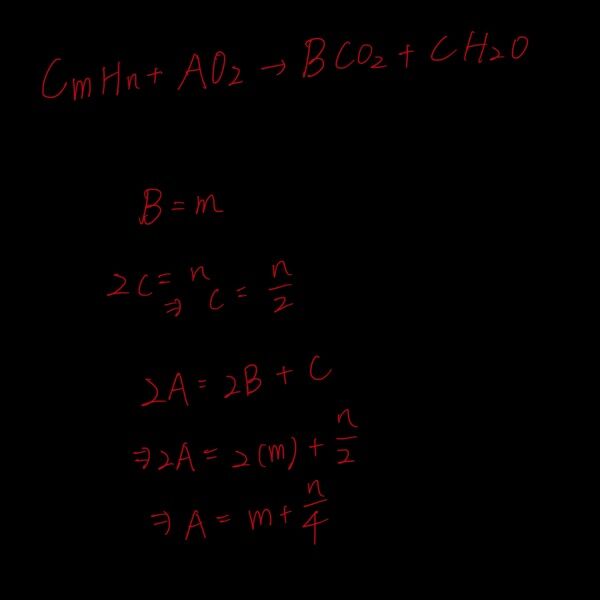 CmHn + AO2 → BCO2 + CH2O
B = m
2C = n ⇒ C = n/2
2A = 2B + C
⇒ 2A = 2(m) + n/2
⇒ A = m + n/4